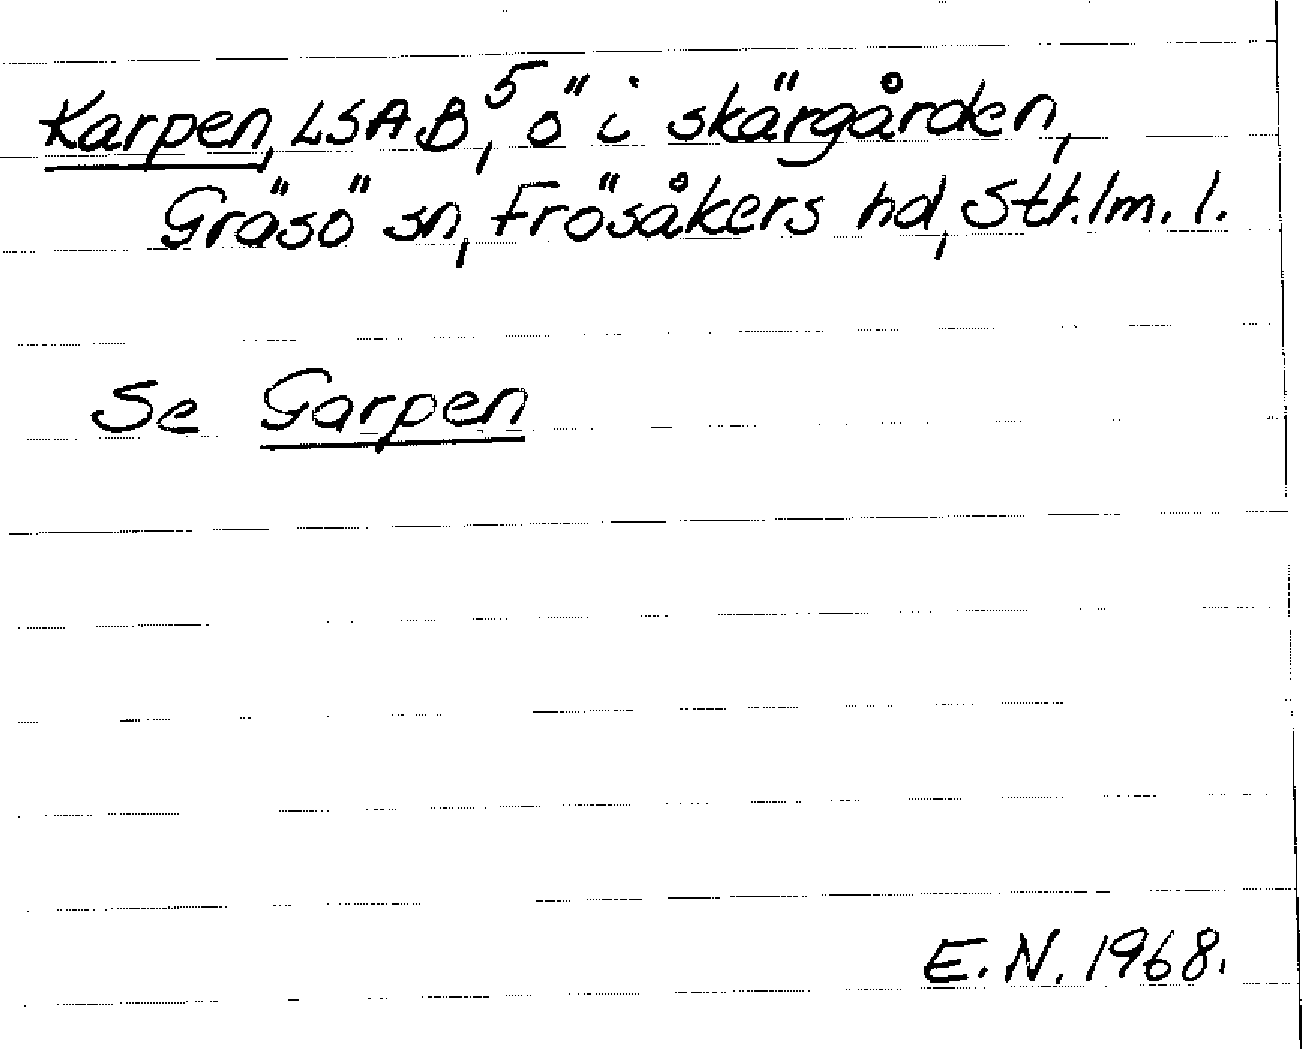 Karpen, LSA B⁵, ö i skärgården,
Gräsö sn, Frösåkers hd, Sthlm. l.
Se Garpen
E. N. 1968.